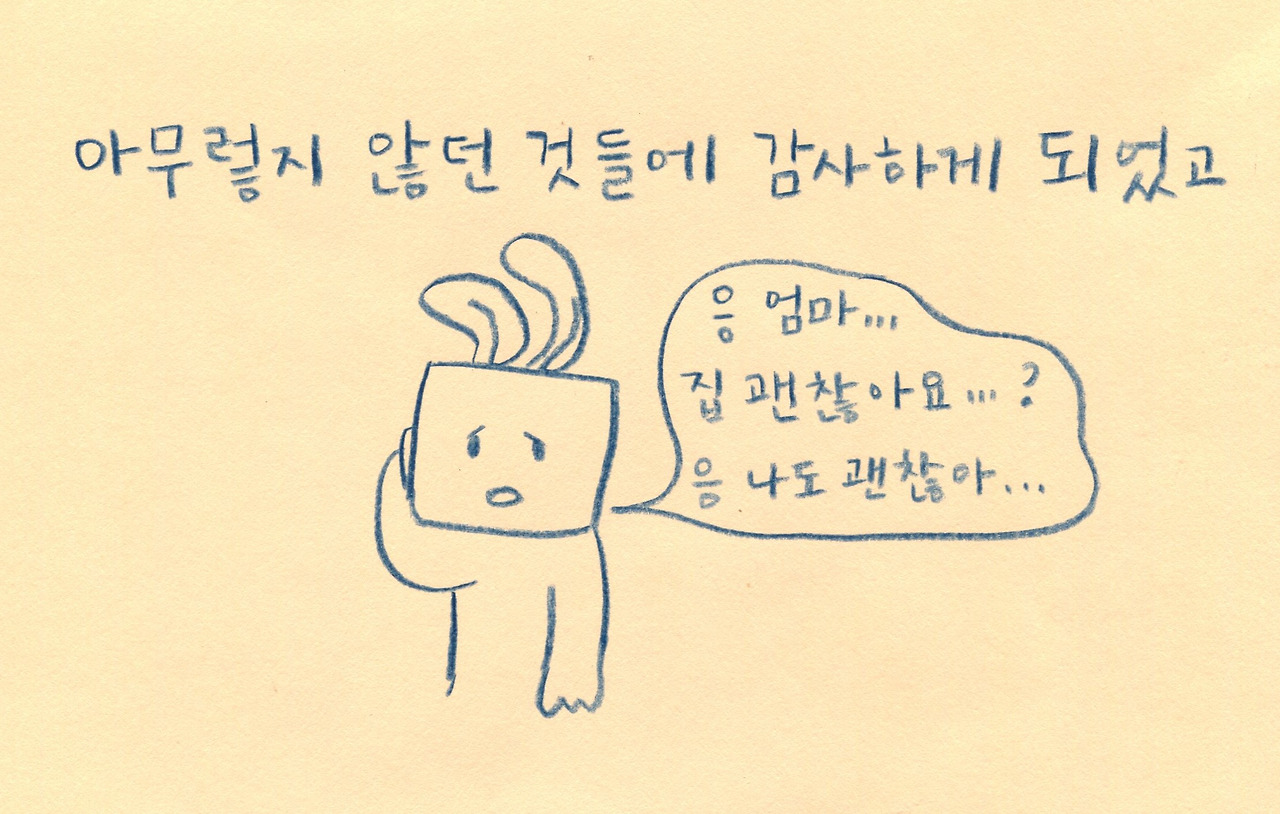 아무렇지 않던 것들에 감사하게 되었고
응 엄마...
집 괜찮아요...?
응 나도 괜찮아...